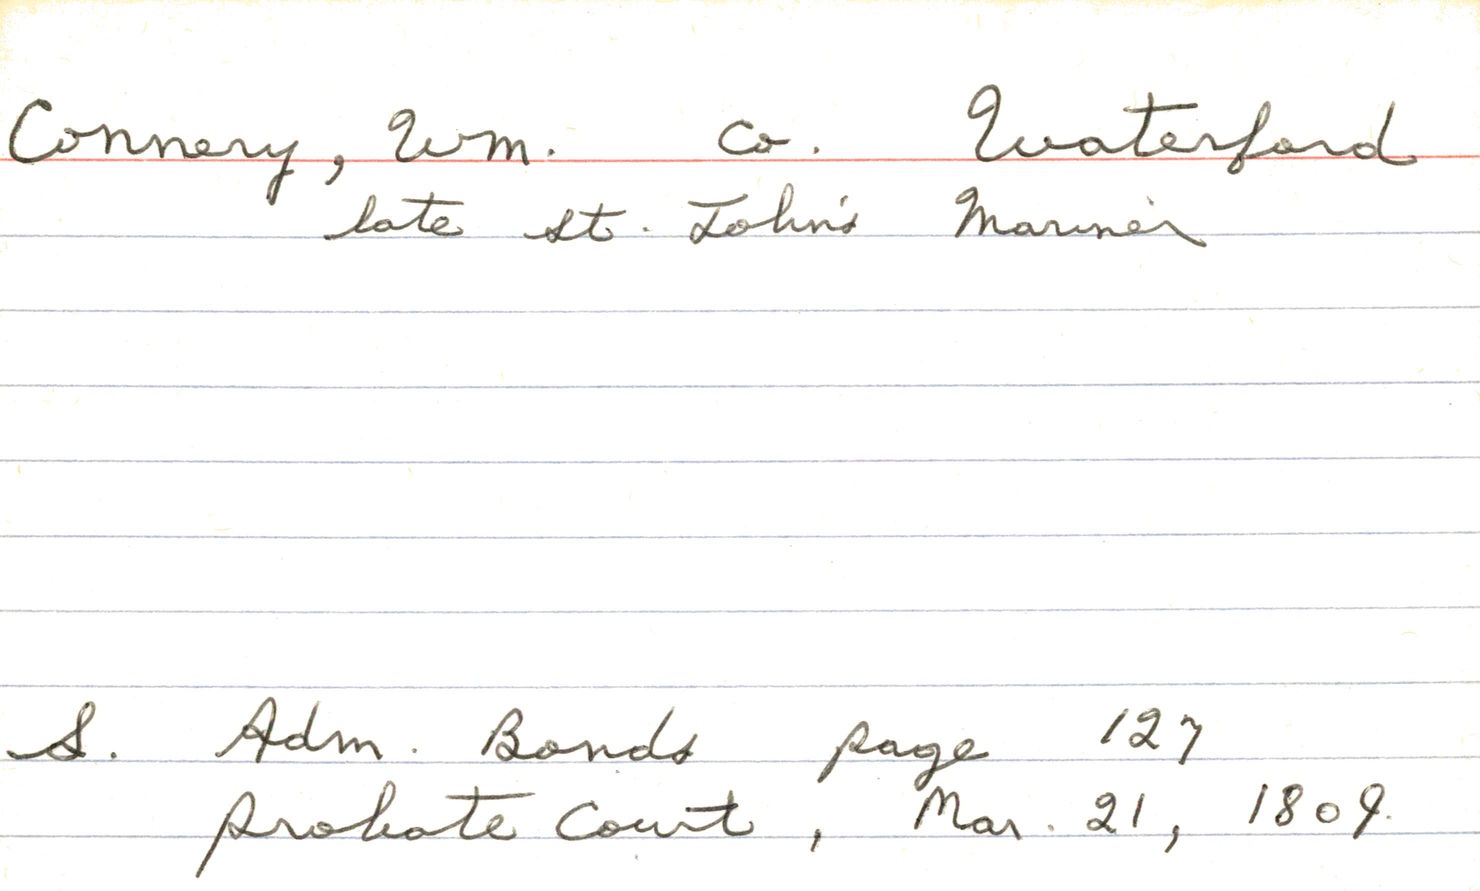 Connery, Wm. Co. Waterford
late St. John's Mariner
S. Adm. Bonds page 127
Probate Court, Mar. 21, 1809.